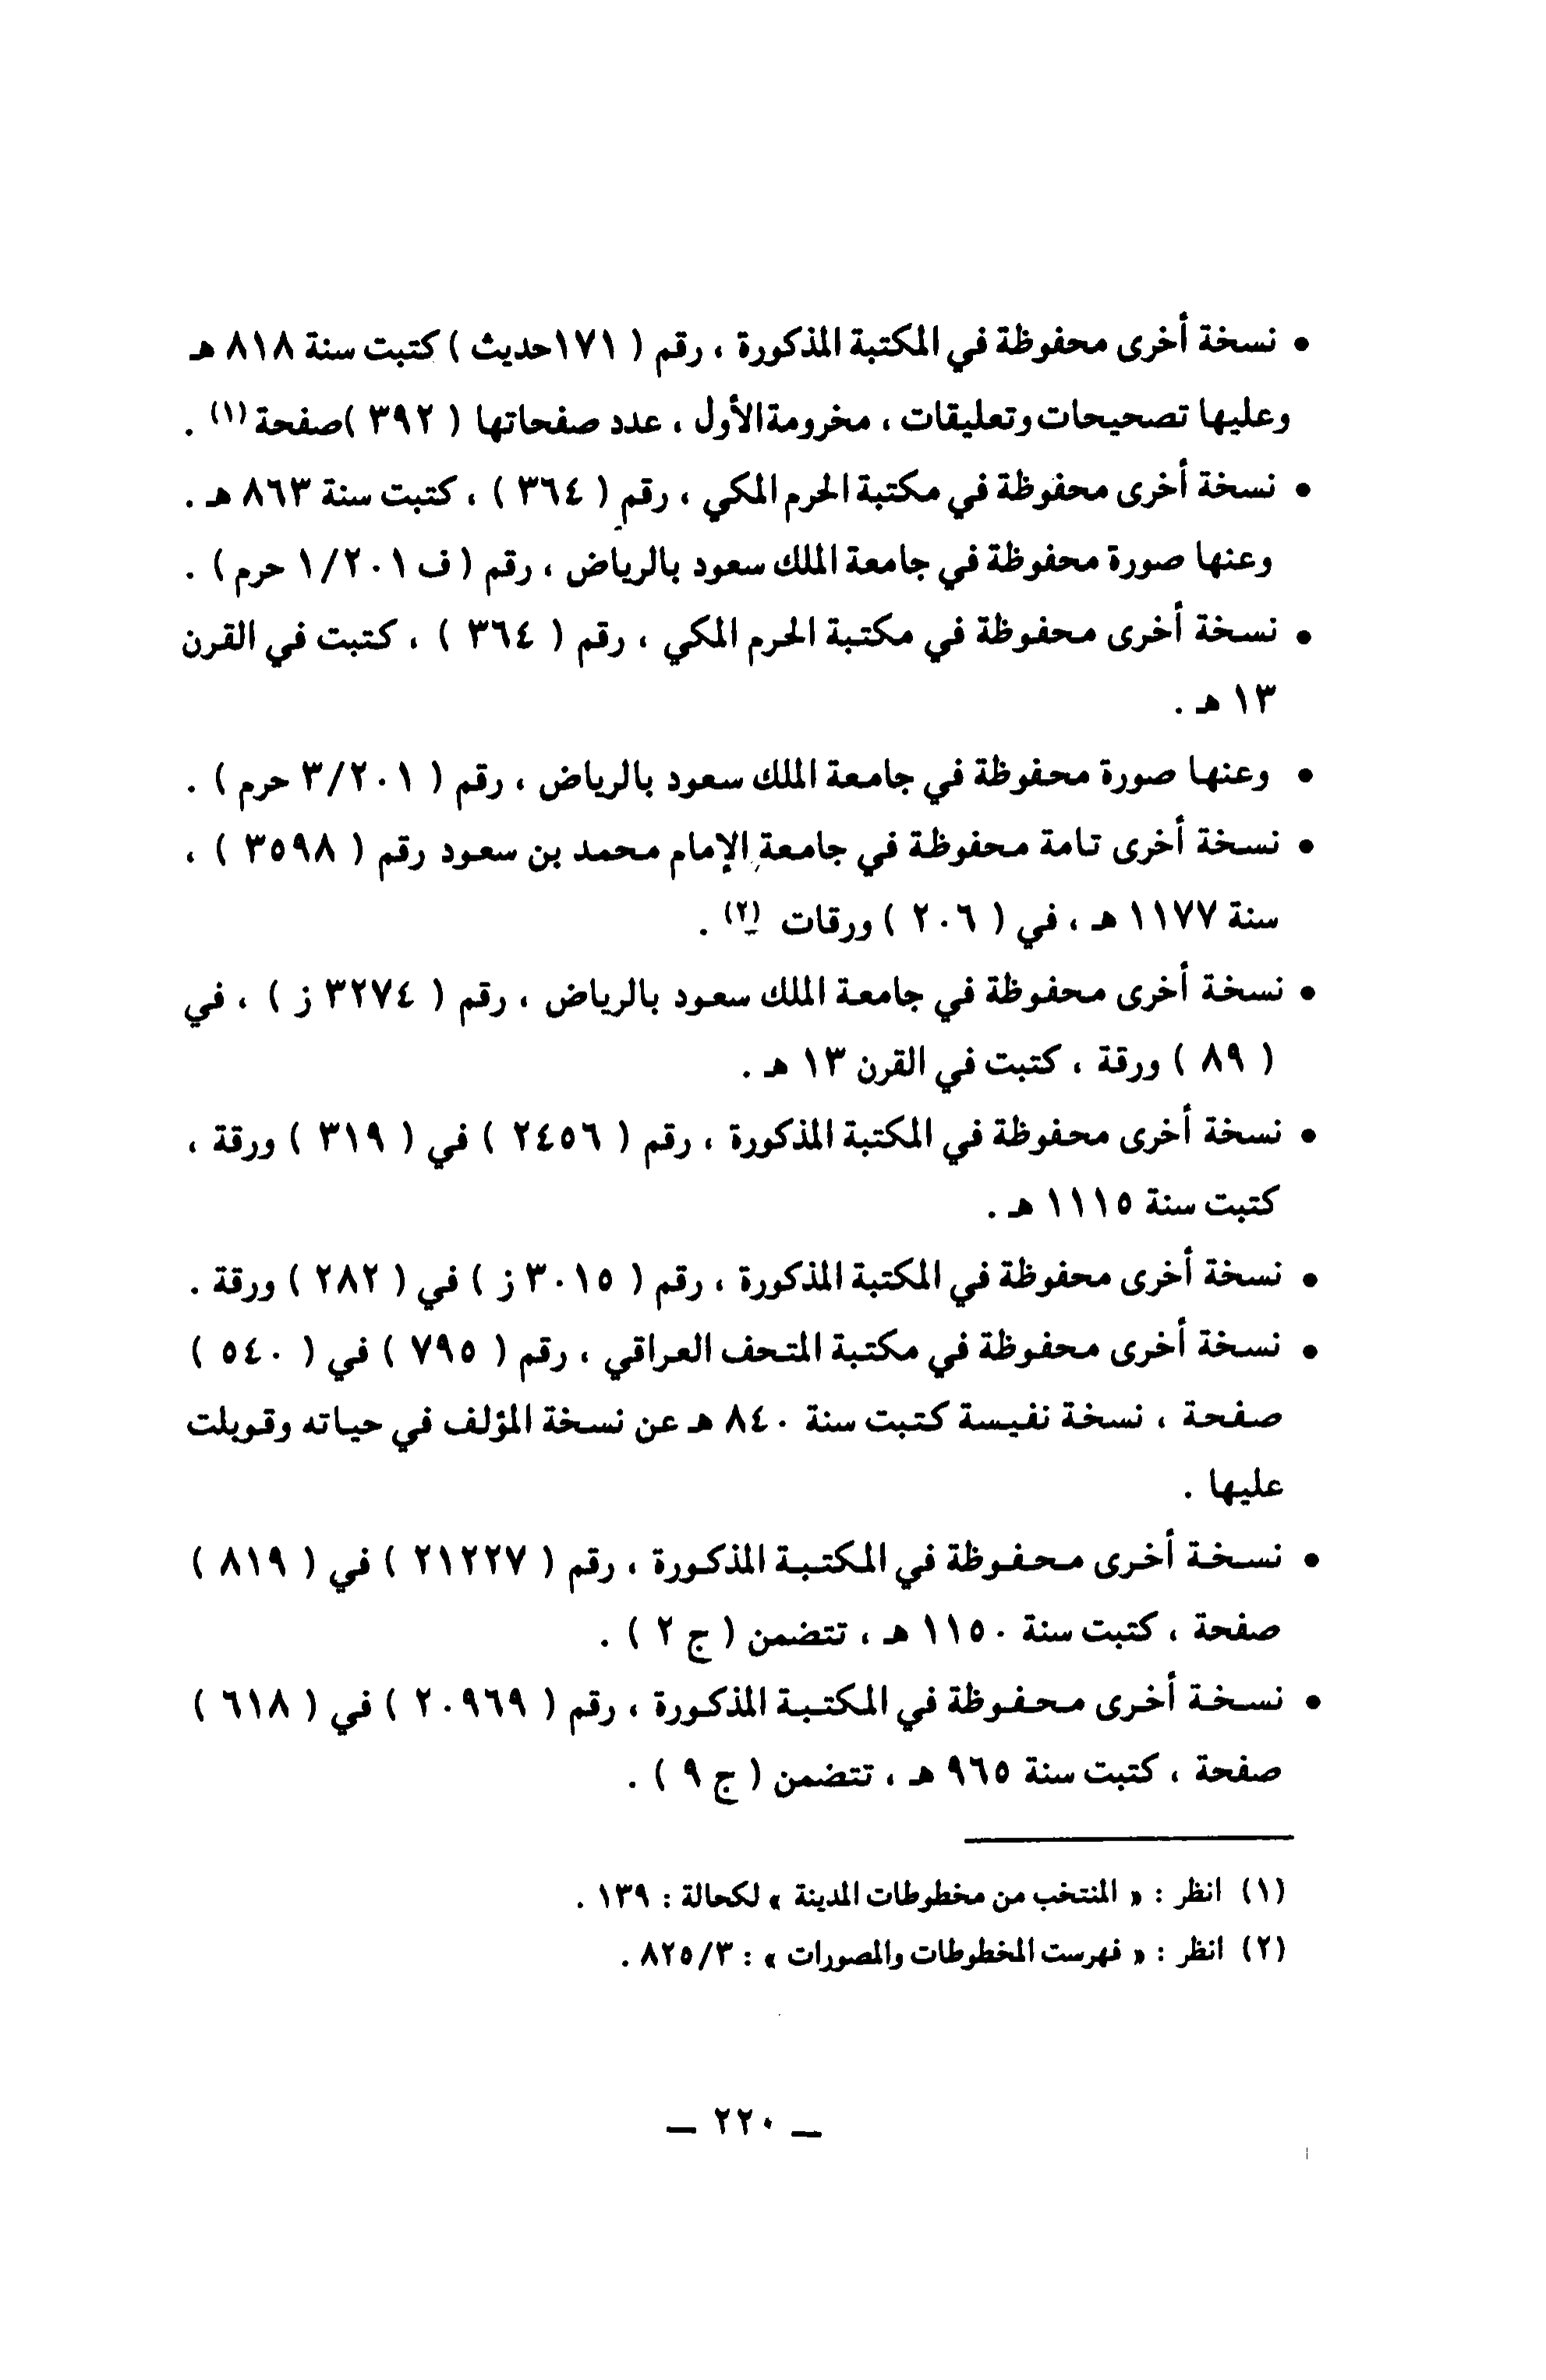 • نسخة أخرى محفوظة في المكتبة المذكورة ، رقم ( ١٧١حديث ) كتبت سنة ٨١٨ هـ
وعليها تصحيحات وتعليقات ، مخرومةالأول ، عدد صفحاتها ( ٣٩٢ )صفحة (١) .
• نسخة أخرى محفوظة في مكتبة الحرم المكي ، رقم ( ٣٦٤ ) ، كتبت سنة ٨٦٣ هـ .
وعنها صورة محفوظة في جامعة الملك سعود بالرياض ، رقم ( ف ١/٢٠١ حرم ) .
• نسخة أخرى محفوظة في مكتبة الحرم المكي ، رقم ( ٣٦٤ ) ، كتبت في القرن
١٣ هـ .
• وعنها صورة محفوظة في جامعة الملك سعود بالرياض ، رقم ( ٣/٢٠١ حرم ) .
• نسخة أخرى تامة محفوظة في جامعة الإمام محمد بن سعود رقم ( ٣٥٩٨ ) ،
سنة ١١٧٧ هـ ، في ( ٢٠٦ ) ورقات (٢) .
• نسخة أخرى محفوظة في جامعة الملك سعود بالرياض ، رقم ( ٣٢٧٤ ز ) ، في
( ٨٩ ) ورقة ، كتبت في القرن ١٣ هـ .
• نسخة أخرى محفوظة في المكتبة المذكورة ، رقم ( ٢٤٥٦ ) في ( ٣١٩ ) ورقة ،
كتبت سنة ١١١٥ هـ .
• نسخة أخرى محفوظة في المكتبة المذكورة ، رقم ( ٣٠١٥ ز ) في ( ٢٨٢ ) ورقة .
• نسخة أخرى محفوظة في مكتبة المتحف العراقي ، رقم ( ٧٩٥ ) في ( ٥٤٠ )
صفحة ، نسخة نفيسة كتبت سنة ٨٤٠ هـ عن نسخة المؤلف في حياته وقوبلت
عليها .
• نسخة أخرى محفوظة في المكتبة المذكورة ، رقم ( ٢١٢٢٧ ) في ( ٨١٩ )
صفحة ، كتبت سنة ١١٥٠ هـ ، تتضمن ( ج ٢ ) .
• نسخة أخرى محفوظة في المكتبة المذكورة ، رقم ( ٢٠٩٦٩ ) في ( ٦١٨ )
صفحة ، كتبت سنة ٩٦٥ هـ ، تتضمن ( ج ٩ ) .
(١) انظر : « المنتخب من مخطوطات المدينة » لكحالة : ١٣٩ .
(٢) انظر : « فهرست المخطوطات والمصورات » : ٨٢٥/٣ .
ــ ٢٢٠ ــ